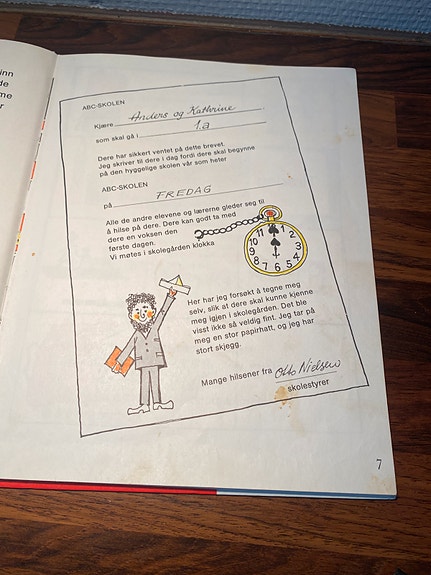 inn
de
me
r
ABC-SKOLEN
Kjære Anders og Kathrine
som skal gå i 1.a
Dere har sikkert ventet på dette brevet.
Jeg skriver til dere i dag fordi dere skal begynne
på den hyggelige skolen vår som heter
ABC-SKOLEN
på FREDAG
Alle de andre elevene og lærerne gleder seg til
å hilse på dere. Dere kan godt ta med
dere en voksen den
første dagen.
Vi møtes i skolegården klokka
12
1
2
3
4
5
6
7
8
9
10
11
Her har jeg forsøkt å tegne meg
selv, slik at dere skal kunne kjenne
meg igjen i skolegården. Det ble
visst ikke så veldig fint. Jeg tar på
meg en stor papirhatt, og jeg har
stort skjegg.
Mange hilsener fra Otto Nielsen
skolestyrer
7